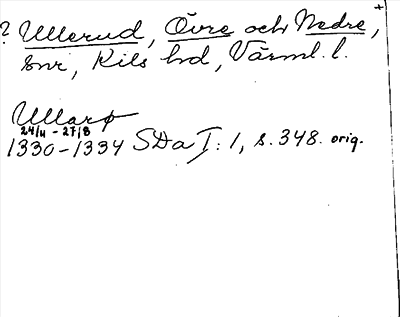 ? Ullerud, Övre och Nedre,
snr, Kils hd, Värml. l.
Ullarø
24/11 - 27/8
1330-1334 SDa I: 1, s. 348. orig.